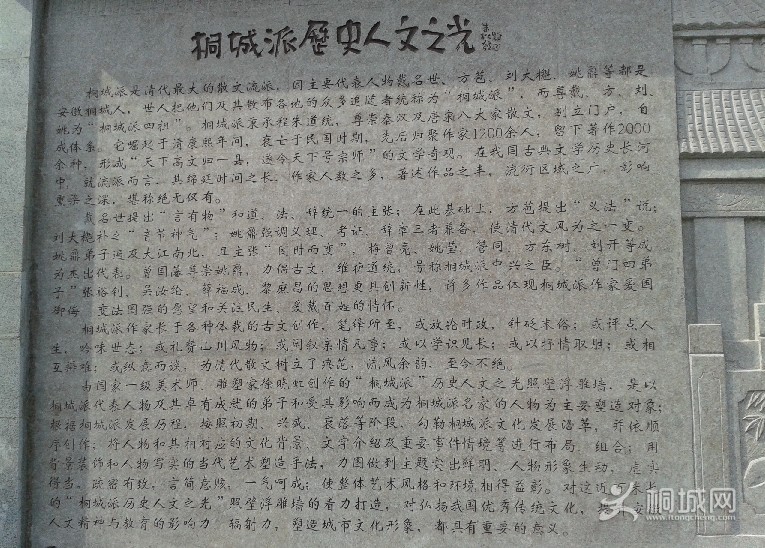 桐城派歷史人文之光
桐城派是清代最大的散文流派，因主要代表人物戴名世、方苞、刘大櫆、姚鼐等都是
安徽桐城人，世人把他们及其散布各地的众多追随者统称为“桐城派”，而尊戴、方、刘、
姚为“桐城派四祖”。桐城派秉承程朱道统，尊崇秦汉及唐宋八大家散文，别立门户，自
成体系。它崛起于清康熙年间，衰亡于民国时期，先后归聚作家1200余人，留下著作2000
余种，形成“天下高文归一县，迄今天下号宗师”的文学奇观。在我国古典文学历史长河
中，就流派而言，其绵延时间之长、作家人数之多、著述作品之丰、流衍区域之广、影响
重学之深，堪称绝无仅有。
戴名世提出“言有物”和道、法、辞统一的主张；在此基础上，方苞提出“义法”说；
刘大櫆补之“音节神气”；姚鼐强调义理、考证、辞章三者兼备，使清代文风为之一变。
姚鼐弟子遍及大江南北，且主张“因时而变”，梅曾亮、姚莹、管同、方东树、刘开等成
为杰出代表。曾国藩尊崇姚鼐，力倡古文，维护道统，号称桐城派中兴之臣。“曾门四弟
子”张裕钊、吴汝纶、薛福成、黎庶昌的思想更具创新性，许多作品体现桐城派作家爱国
御侮、变法图强的愿望和关注民生、爱戴百姓的情怀。
桐城派作家长于各种体裁的古文创作，笔绎所至，或放论时政，针砭末俗；或评点人
生，吟味世态；或礼赞山川风物；或间叙亲情凡事；或以学识见长；或以抒情取胜；或相
互辩难；或纵意而谈，为清代散文树立了典范，流风余韵，至今不绝。
由国家一级美术师、雕塑家徐晓虹创作的“桐城派”历史人文之光照壁浮雕墙，是以
桐城派代表人物及其卓有成就的弟子和受其影响而成为桐城派名家的人物为主要塑造对象；
根据桐城派发展历程，按照初期、兴盛、衰落等阶段，勾勒桐城派文化发展沿革，并依顺
序创作；将人物和其相对应的文化背景、文字介绍及重要事件情境等进行布局、组合；用
背景装饰和人物写实的当代艺术塑造手法，力图做到主题突出鲜明、人物形象生动，虚实
得当、疏密有致，言简意赅，一气呵成；使整体艺术风格和环境相得益彰。对这近万米长
的“桐城派历史人文之光”照壁浮雕墙的着力打造，对弘扬我国优秀传统文化，
人文精神与教育的影响力、辐射力，塑造城市文化形象，都具有重要的意义。
桐城网
www.itongcheng.com